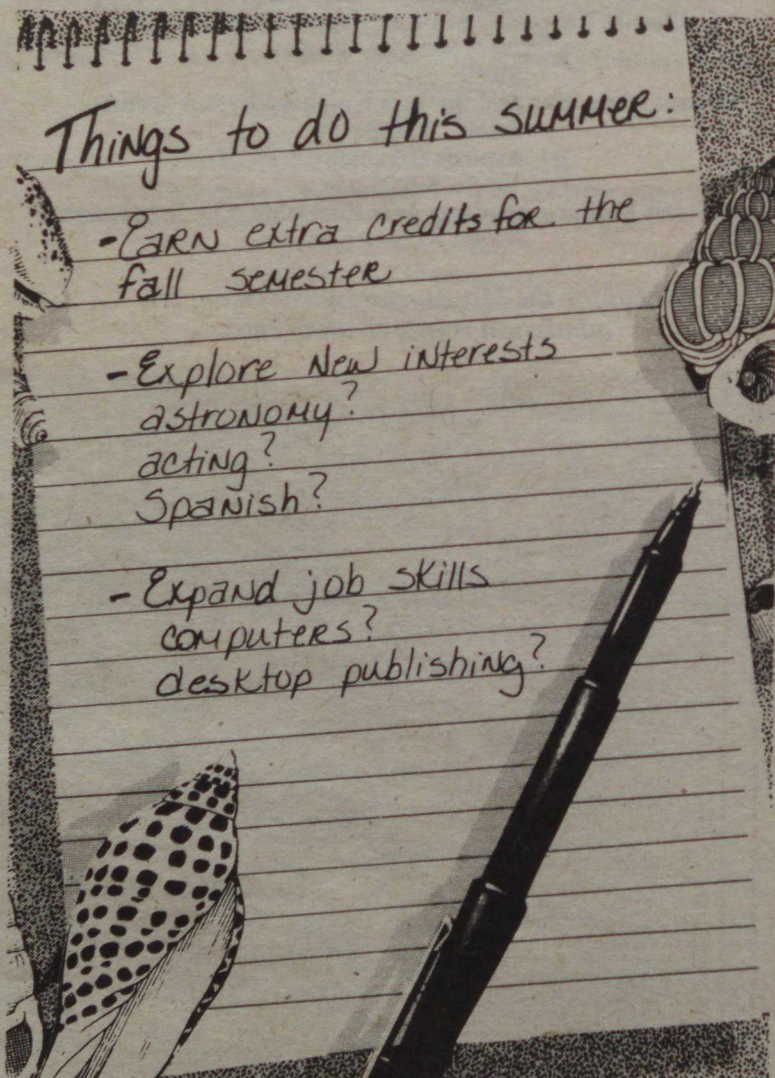 Things to do this summer:
- Earn extra credits for the
fall semester
- Explore new interests
astronomy?
acting?
Spanish?
- Expand job skills
computers?
desktop publishing?